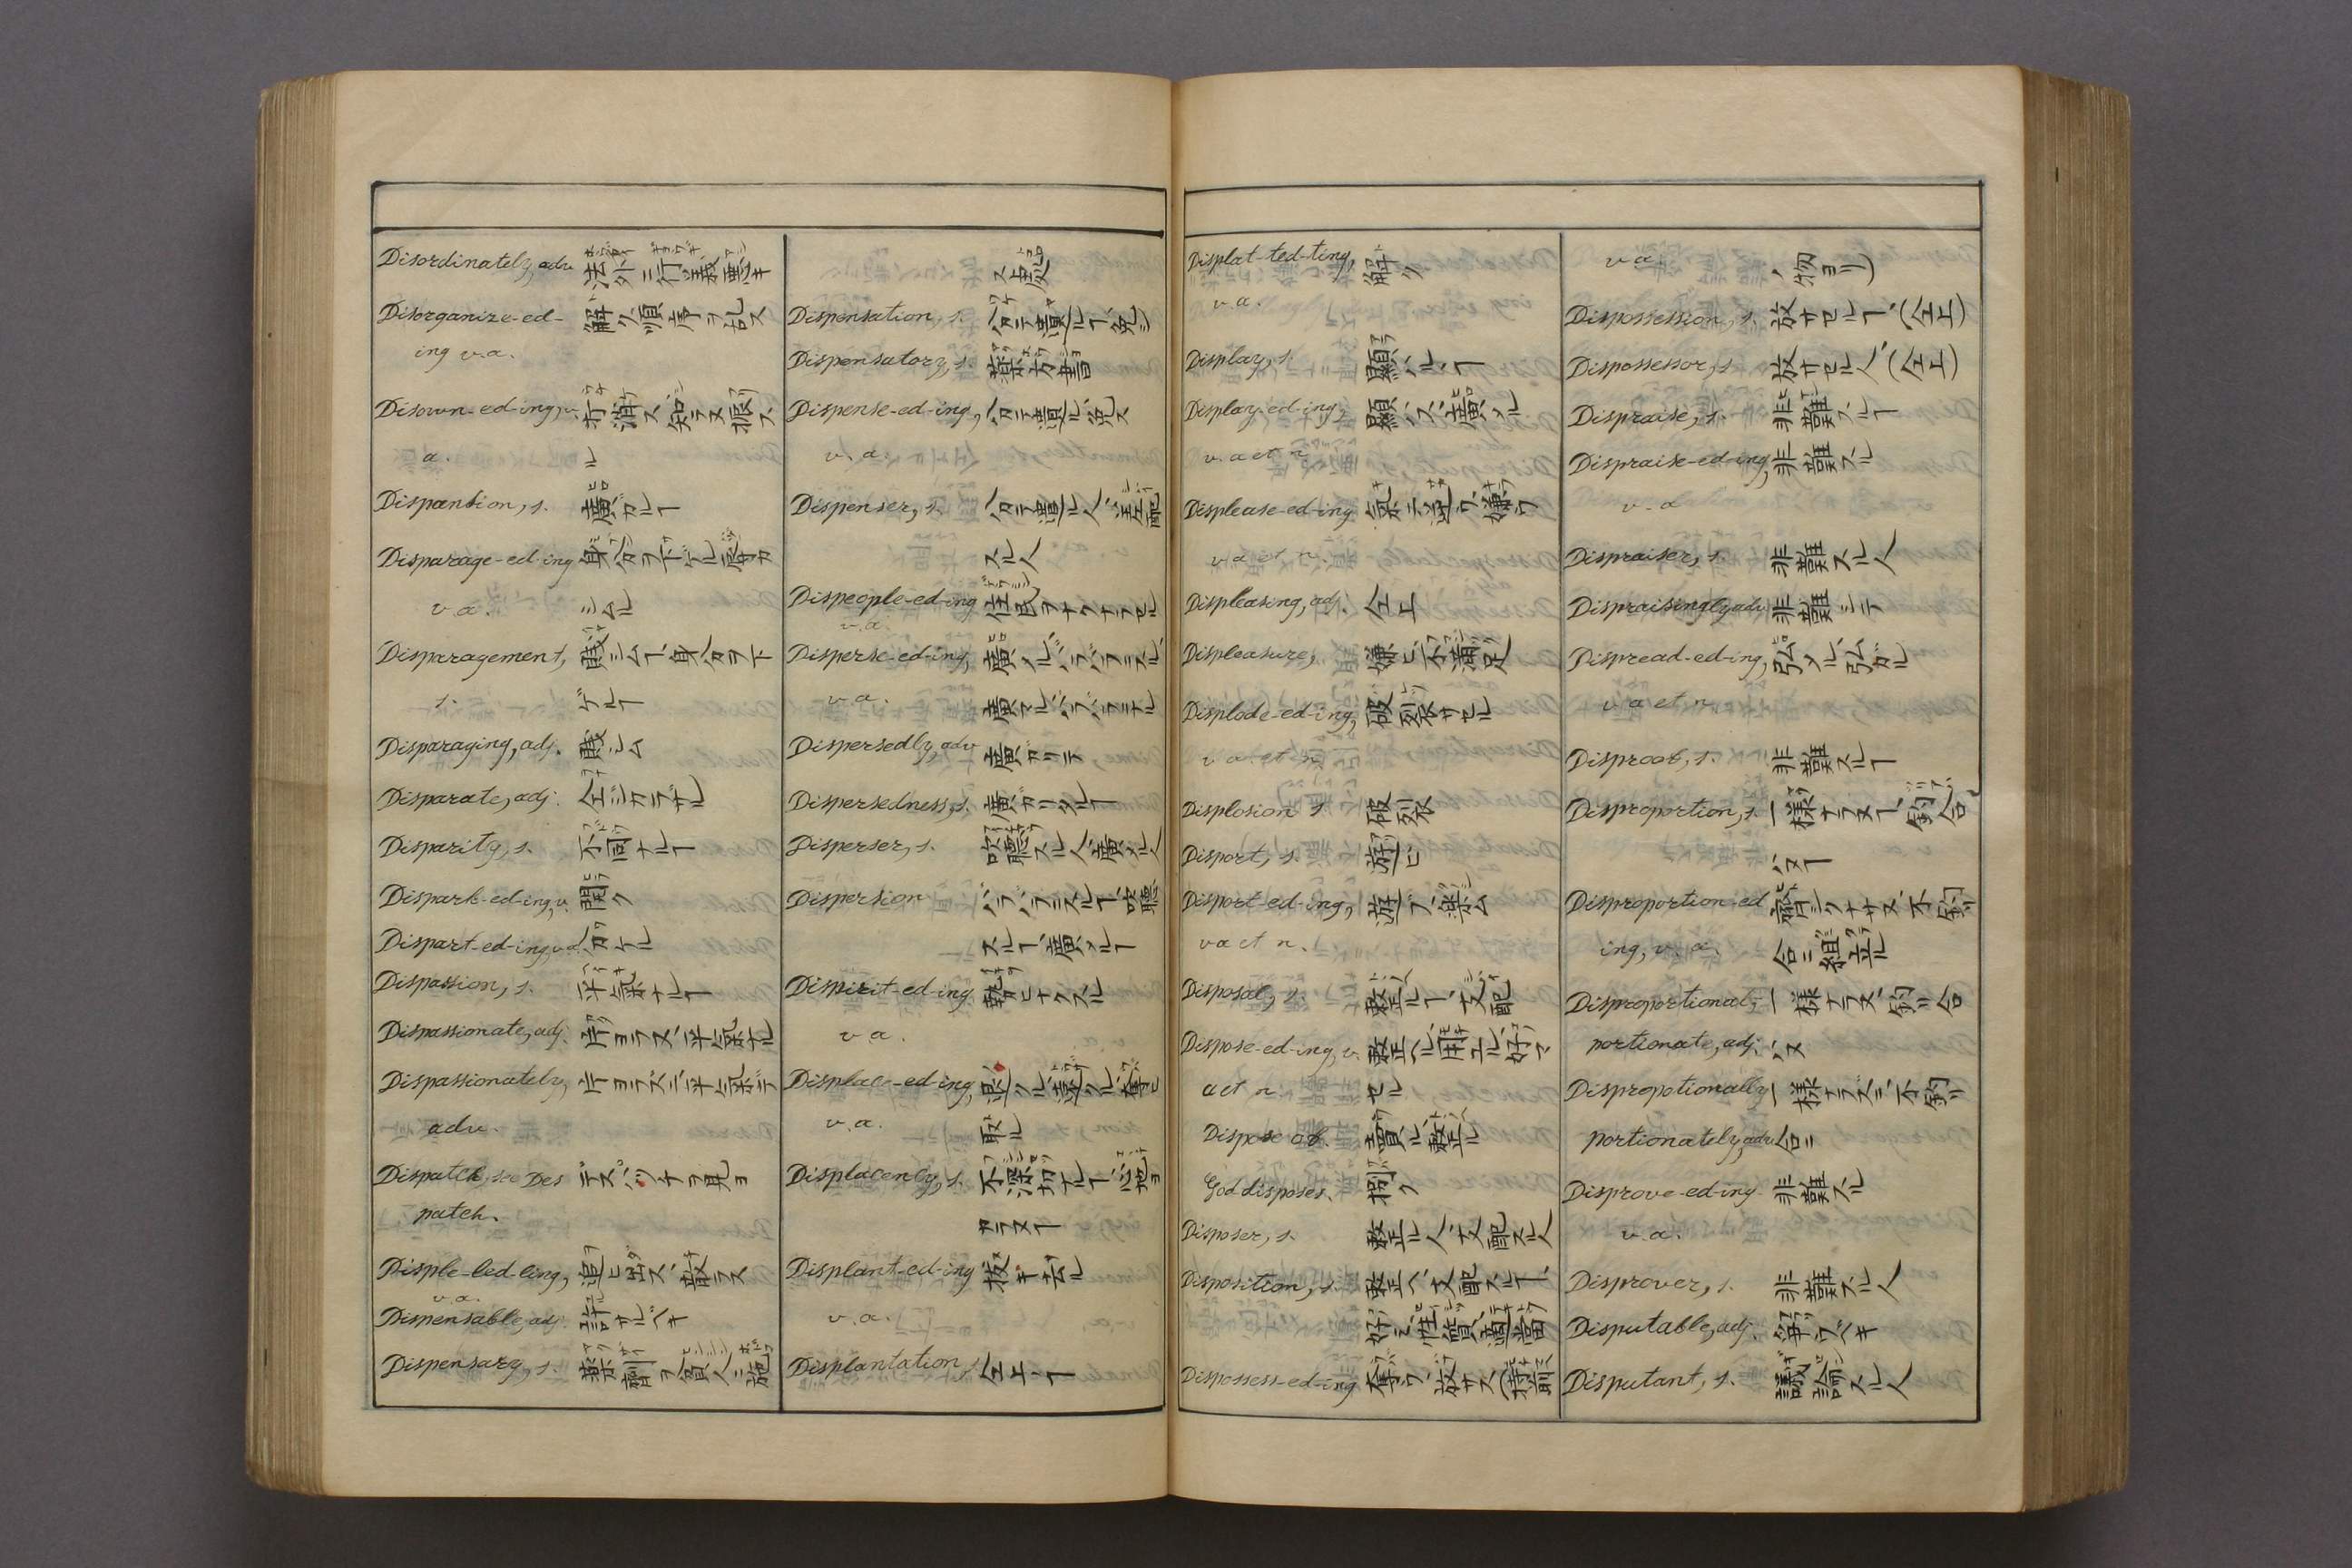 Disordinately, adv. 法外ニ行義悪キ
Disorganize-ed- 解ク順序ヲ乱ス
ing v.a.
Disown-ed-ing, v. 打消ス、知ラヌ振ス
a. ル
Dispansion, s. 廣ガルヿ
Disparage-ed-ing 身分ヲ下ゲル
v.a. シムル
Disparagement, 賎シムヿ、身分ヲ下
s. ゲルヿ
Disparaging, adj. 賎シム
Disparate, adj. 仝ジカラザル
Disparity, s. 不同ナルヿ
Dispark-ed-ing, v. 開ク
Dispart-ed-ing, v.a. 分ケル
Dispassion, s. 平氣ナルヿ
Dispassionate, adj. 片ヨラヌ、平氣ナル
Dispassionately, 片ヨラズニ、平氣デ
adv.
Dispatch, see Des デスパッチヲ見ヨ
patch.
Disple-led-ling, 追ヒ出ス、散ラス
v.a.
Dispensable, adj. 許サルベキ
Dispensary, s. 藥劑ヲ貧人ニ施
ス局処
Dispensation, s. 分テ遣ルヿ、免シ
Dispensatory, s. 藥方書
Dispense-ed-ing, 分テ遣ル、免ス
v.a.
Dispenser, s. 分テ遣ル人、支配
スル人
Dispeople-ed-ing 住民ヲナクナラセル
v.a.
Disperse-ed-ing, 廣メル、バラバラニスル、
v.a. 廣マル、バラバラニナル
Dispersedly, adv. 廣ガリテ
Dispersedness, s. 廣ガリタルヿ
Disperser, s. 吹聴スル人、廣メル人
Dispersion バラバラニスルヿ、吹聴
スルヿ、廣メルヿ
Dispirit-ed-ing 勢ヒナクスル
v.a.
Displace-ed-ing, 退クル、遠クル、奪ヒ
v.a. 取ル
Displacency, s. 不深切ナルヿ、心地ヨ
カラヌヿ
Displant-ed-ing 抜キ去ル
v.a.
Displantation, s. 仝上ヿ
Displat-ted-ting, 解ク
v.a.
Display, s. 顯ハルヽヿ
Display-ed-ing, 顯ハス、廣メル
v.a et n.
Displease-ed-ing 氣ニ逆フ、嫌フ
v.a et n.
Displeasing, adj. 仝上
Displeasure, 嫌ヒ、不満足
Displode-ed-ing, 破裂サセル
v.a. et n.
Displosion s. 破裂
Disport, s. 遊ビ
Disport-ed-ing, 遊ブ、楽ム
v.a et n.
Disposal, s. 整ルヿ、支配
Dispose-ed-ing, v. 整ヘル、用立ル、好マ
a et n. セル
Dispose of. 賣ル、整ル
God disposes. 捌ク
Disposer, s. 整ル人、支配スル人
Disposition, s. 整ヘ、支配スルヿ、
好ミ、性質、適當
Dispossess-ed-ing 奪フ、放サス(特別
v.a. ノ物ヨリ)
Dispossession, s. 放サセルヿ(仝上)
Dispossessor, s. 放サセル人(仝上)
Dispraise, s. 非難スルヿ
Dispraise-ed-ing, 非難スル
v.a
Dispraiser, s. 非難スル人
Dispraisingly, adv. 非難シテ
Dispread-ed-ing, 弘メル、弘ガル
v.a et n.
Disproof, s. 非難スルヿ
Disproportion, s. 一様ナラヌヿ、釣合
ハヌヿ
Disproportion-ed 齊シクナサヌ、不釣
ing, v. a. 合ニ組立ル
Disproportional, 一様ナラヌ、釣リ合
portionate, adj. ハヌ
Dispropotionally 一様ナラズニ、不釣リ
portionately, adv. 合ニ
Disprove-ed-ing 非難スル
v.a.
Disprover, s. 非難スル人
Disputable, adj. 争フベキ
Disputant, s. 議論スル人